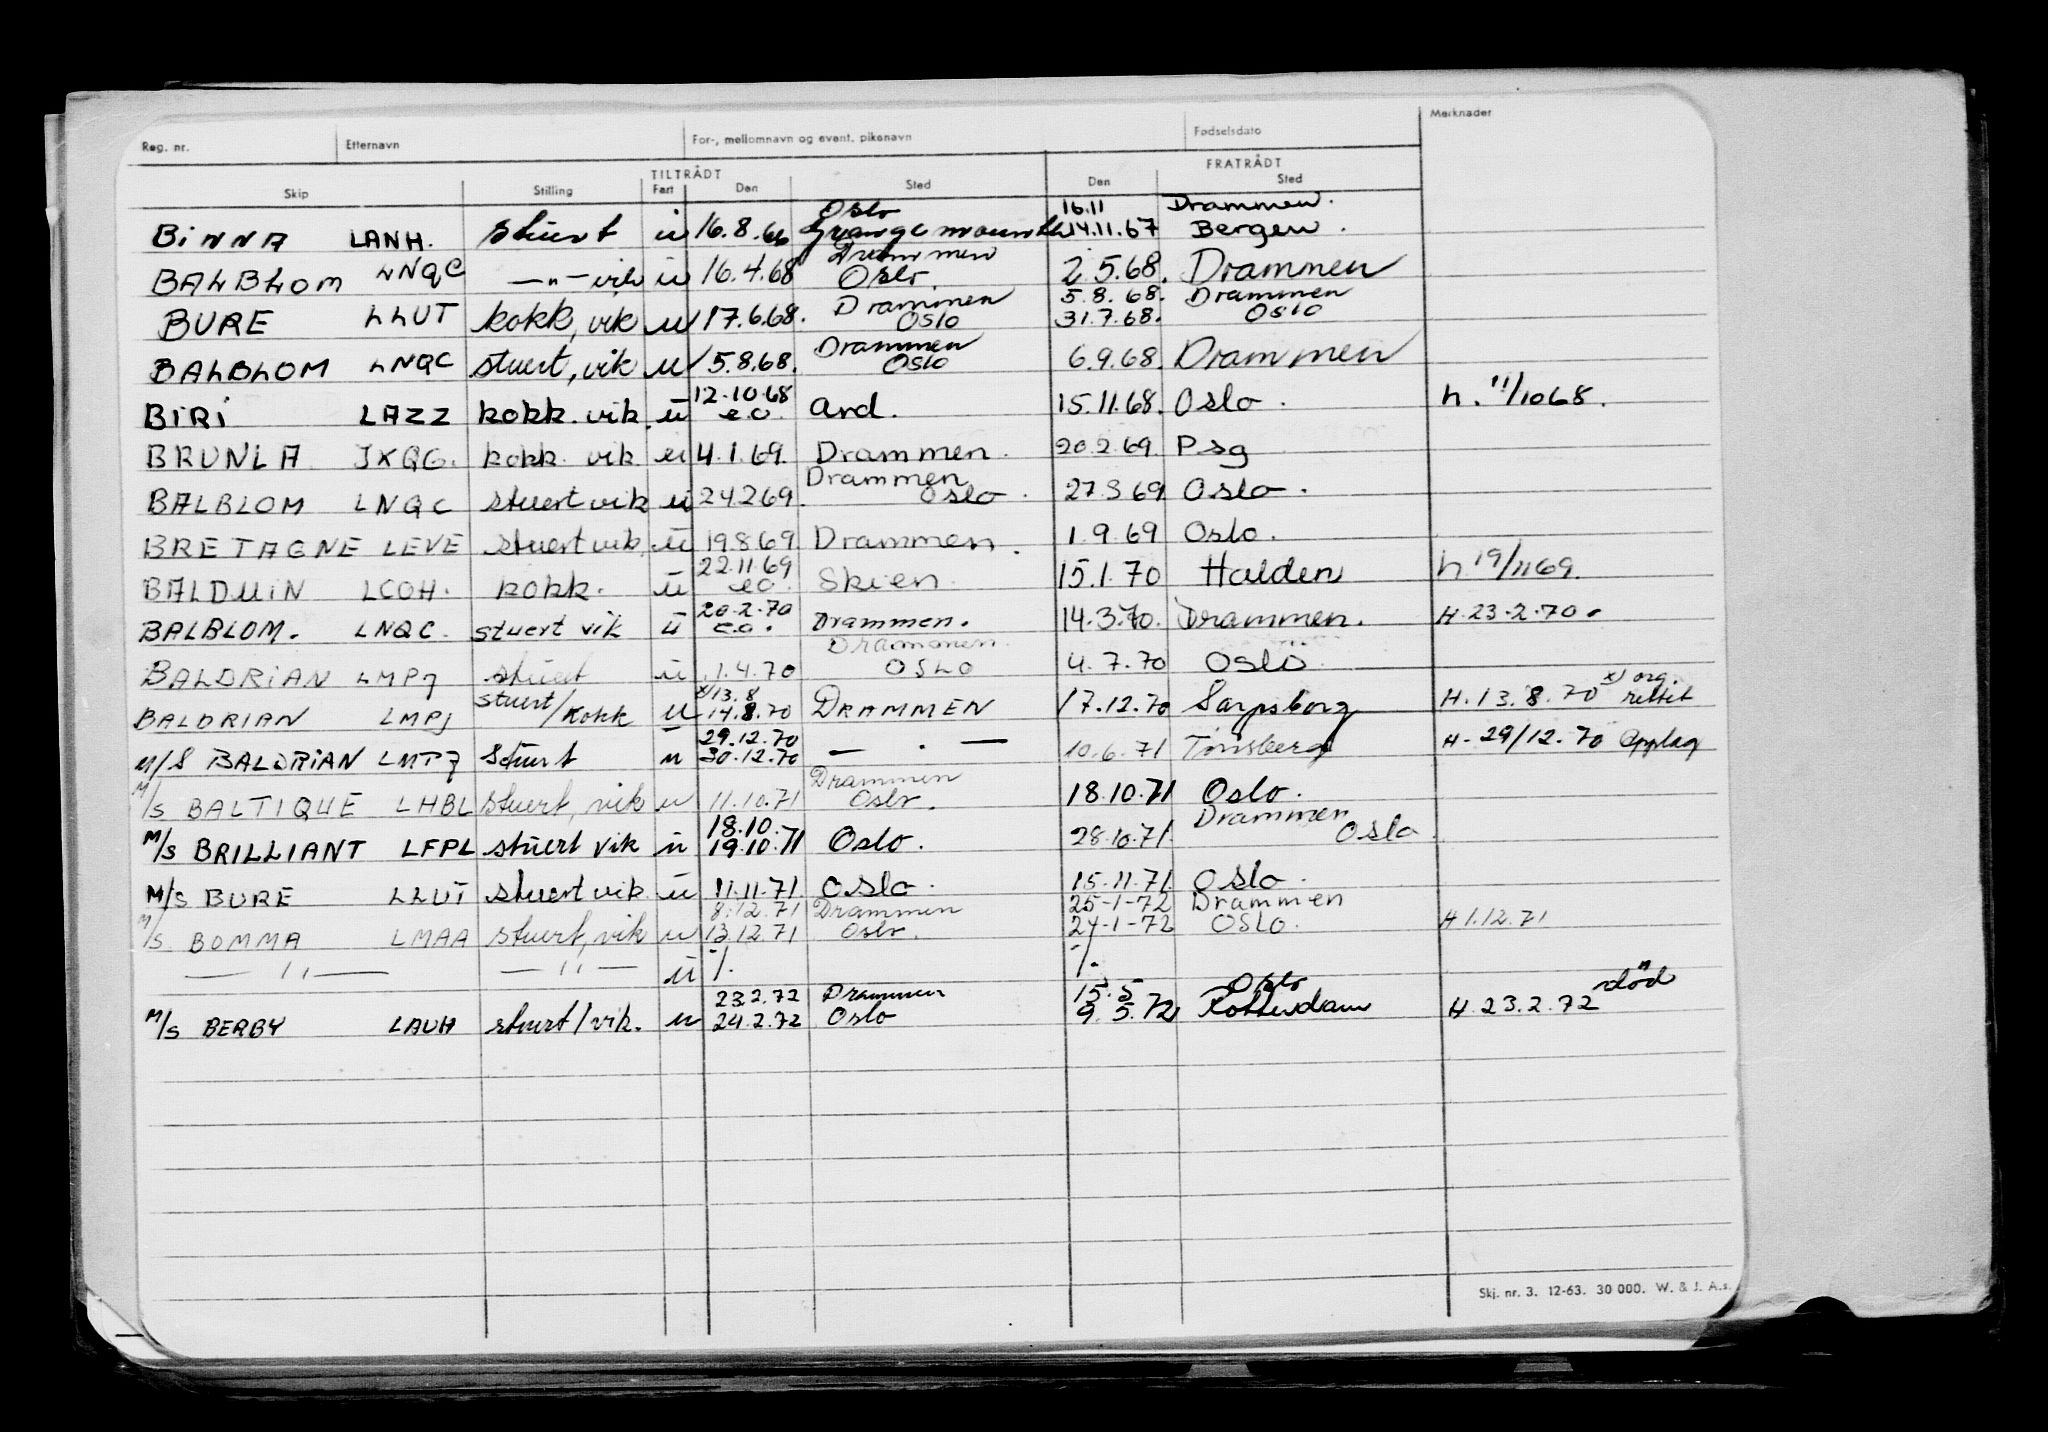 Reg. nr. Etternavn For-, mellomnavn og event. pikenavn Fødselsdato Merknader
TILTRÅDT FRATRÅDT
Skip Stilling Fart Den Sted Den Sted
Oslo 16.11 Drammen.
BINNA LANH. Stuert u 16.8.66 Grangemounth 14.11.67 Bergen.
Drammen
BALBLOM LNQC —"— vik u 16.4.68 Oslo. 2.5.68. Drammen
Drammen 5.8.68. Drammen
BURE LLUT kokk, vik u 17.6.68. Oslo 31.7.68. Oslo
Drammen
BALBLOM LNQC stuert, vik u 5.8.68. Oslo 6.9.68. Drammen
12.10.68
BIRI LAZZ kokk. vik. u e.o. Ard. 15.11.68. Oslo. h. 11/10 68.
BRUNLA JXQG. kokk. vik u 4.1.69. Drammen. 20.2.69. Psg
Drammen
BALBLOM LNQC stuert vik u 24.2.69. Oslo. 27.3.69 Oslo.
BRETAGNE LEVE stuert vik. u 19.8.69. Drammen. 1.9.69 Oslo.
22.11.69
BALDUIN LCOH. kokk. u e.o. Skien. 15.1.70 Halden h. 19/11 69.
20.2.70
BALBLOM. LNQC. stuert vik u e.o. Drammen. 14.3.70. Drammen. H.23.2.70.
Drammen.
BALDRIAN LMPJ stuert u 1.4.70 OSLO 4.7.70 Oslo.
stuert x) 13.8 x) org.
BALDRIAN LMPJ /kokk u 14.8.70 DRAMMEN 17.12.70 Sarpsborg H.13.8.70 rettet
29.12.70
M/S BALDRIAN LMPJ Stuert u 30.12.70 — . — 10.6.71 Tønsberg H-29/12.70 Opplag
Drammen
M/S BALTIQUE LHBL stuert, vik u 11.10.71 Oslo. 18.10.71 Oslo.
18.10. Drammen
M/S BRILLIANT LFPL stuert vik u 19.10.71 Oslo. 28.10.71. Oslo
M/S BURE LLUT stuert vik. u 11.11.71. Oslo. 15.11.71. Oslo.
8.12.71 Drammen 25-1-72 Drammen
M/S. BOMMA LMAA stuert, vik u 13.12.71 Oslo. 24-1-72 OSLO. H 1.12.71
— " — — " — u -/. -/.
23.2.72 Drammen 15.5 Oslo død
M/S BERBY LAUH stuert/vik. u 24.2.72 Oslo 9.5.72 Rotterdam H.23.2.72
Skj. nr. 3. 12-63. 30 000. W. & J. A.s.